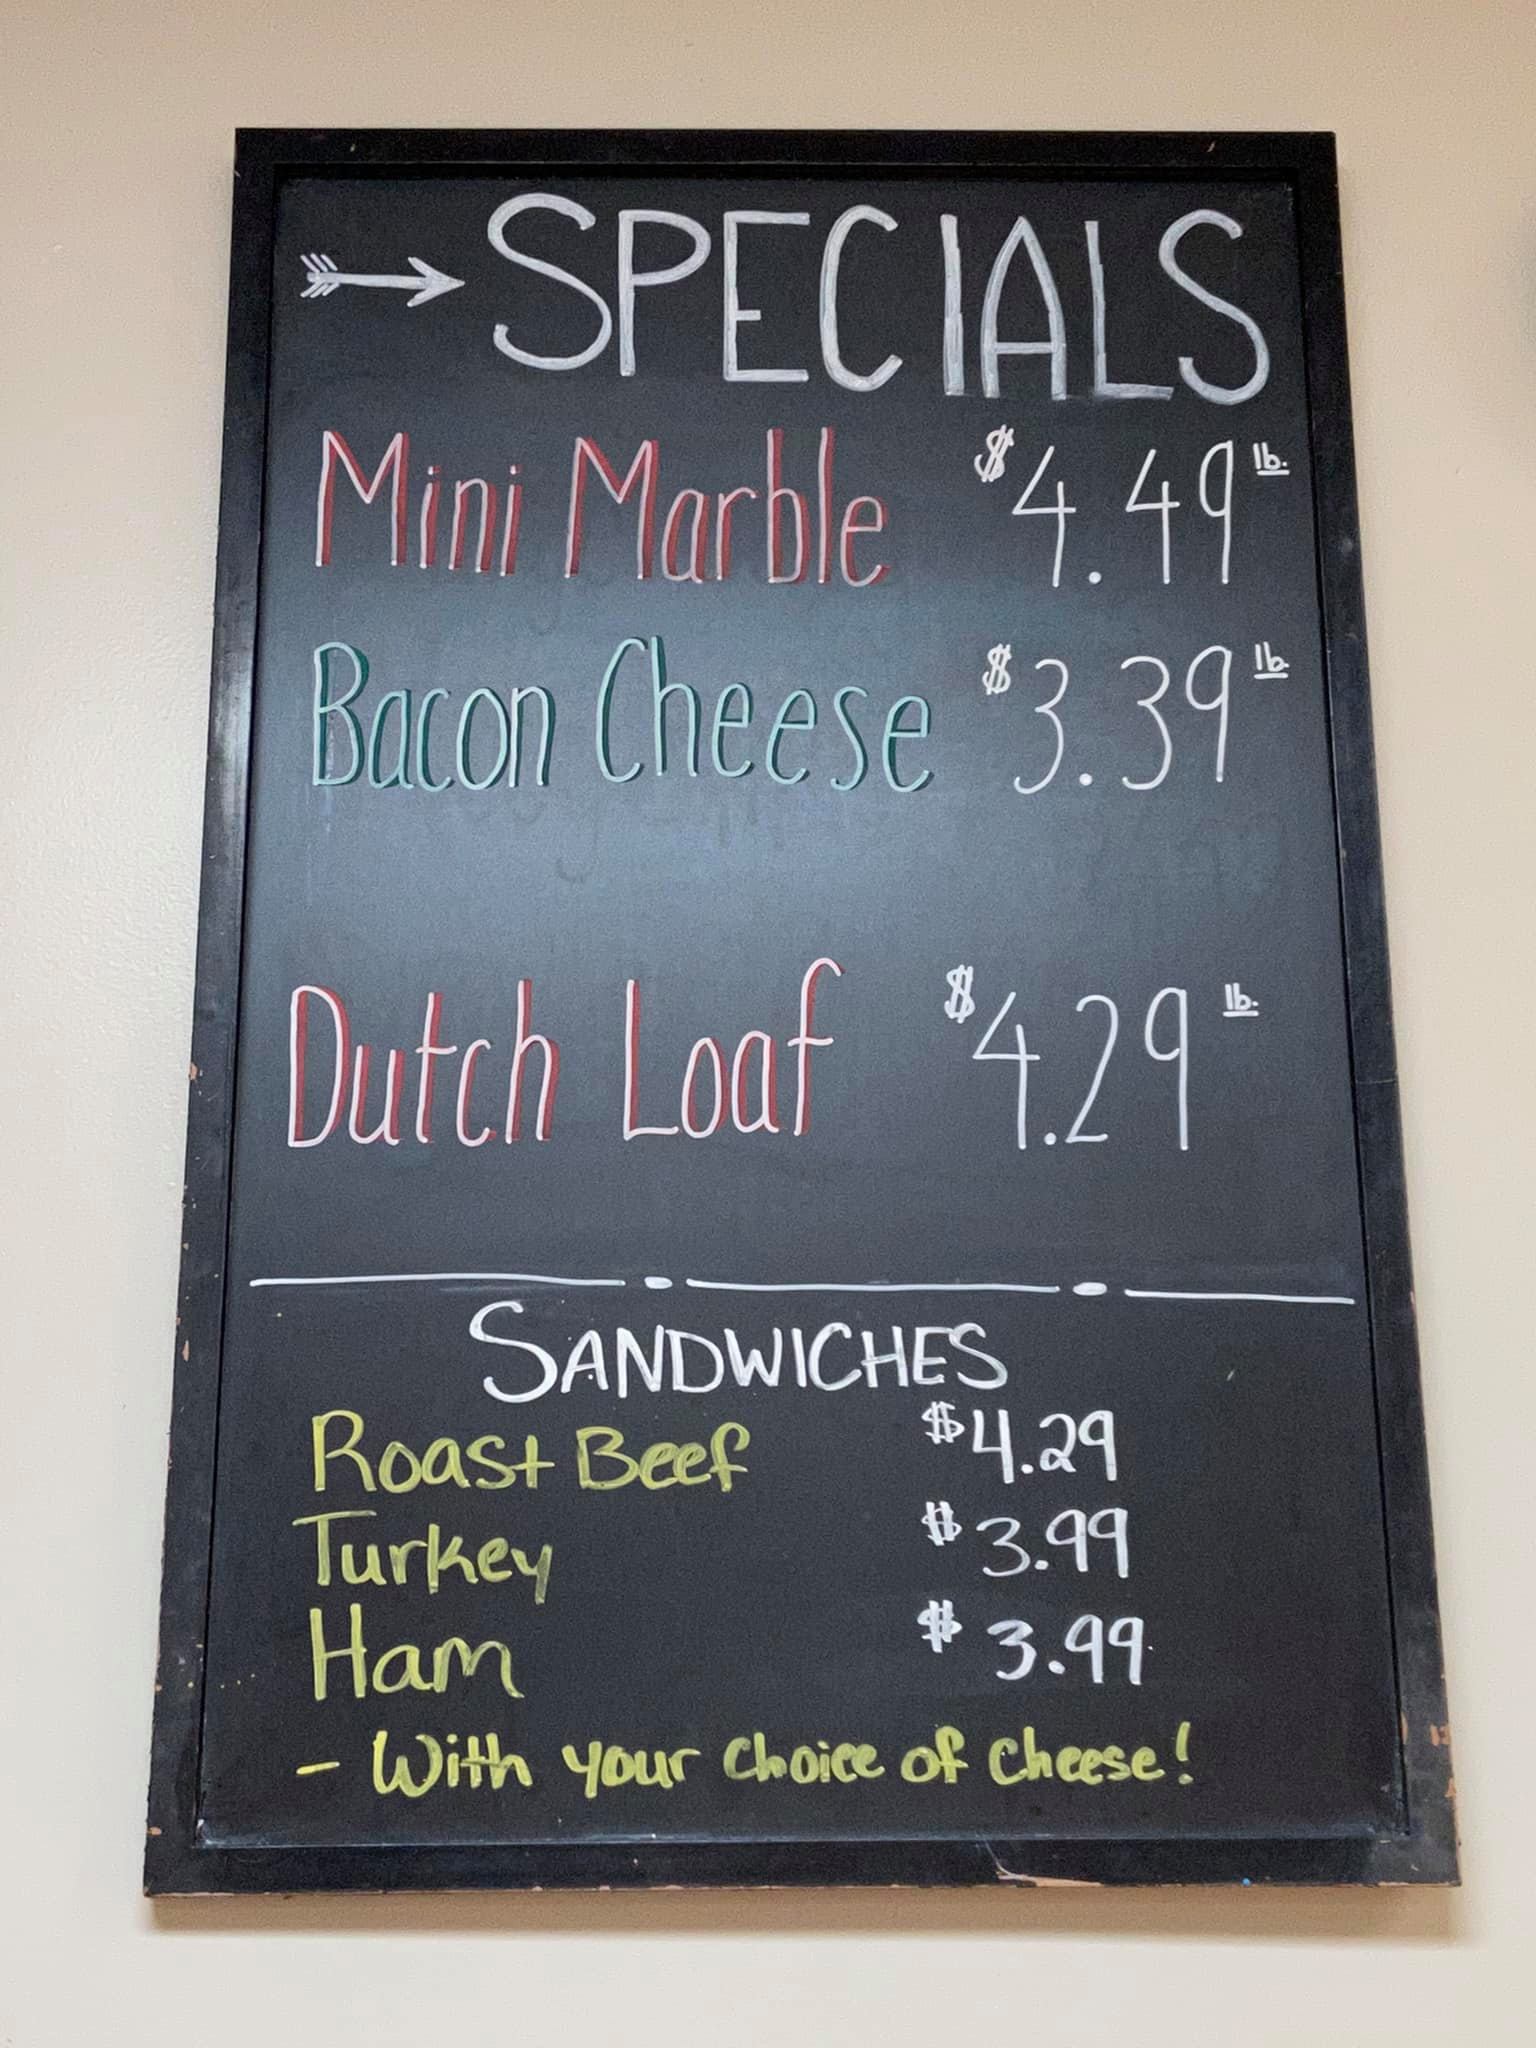 SPECIALS
Mini Marble $4.49 lb.
Bacon Cheese $3.39 lb.
Dutch Loaf $4.29 lb.
SANDWICHES
Roast Beef $4.29
Turkey $3.99
Ham $3.99
- With your choice of cheese!